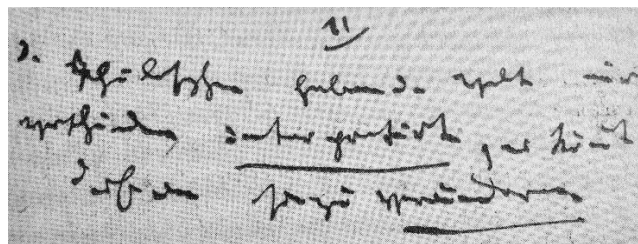 11
D. Philosophen haben d. Welt nur
verschieden interpretirt, es kömmt
drauf an sie zu verändern